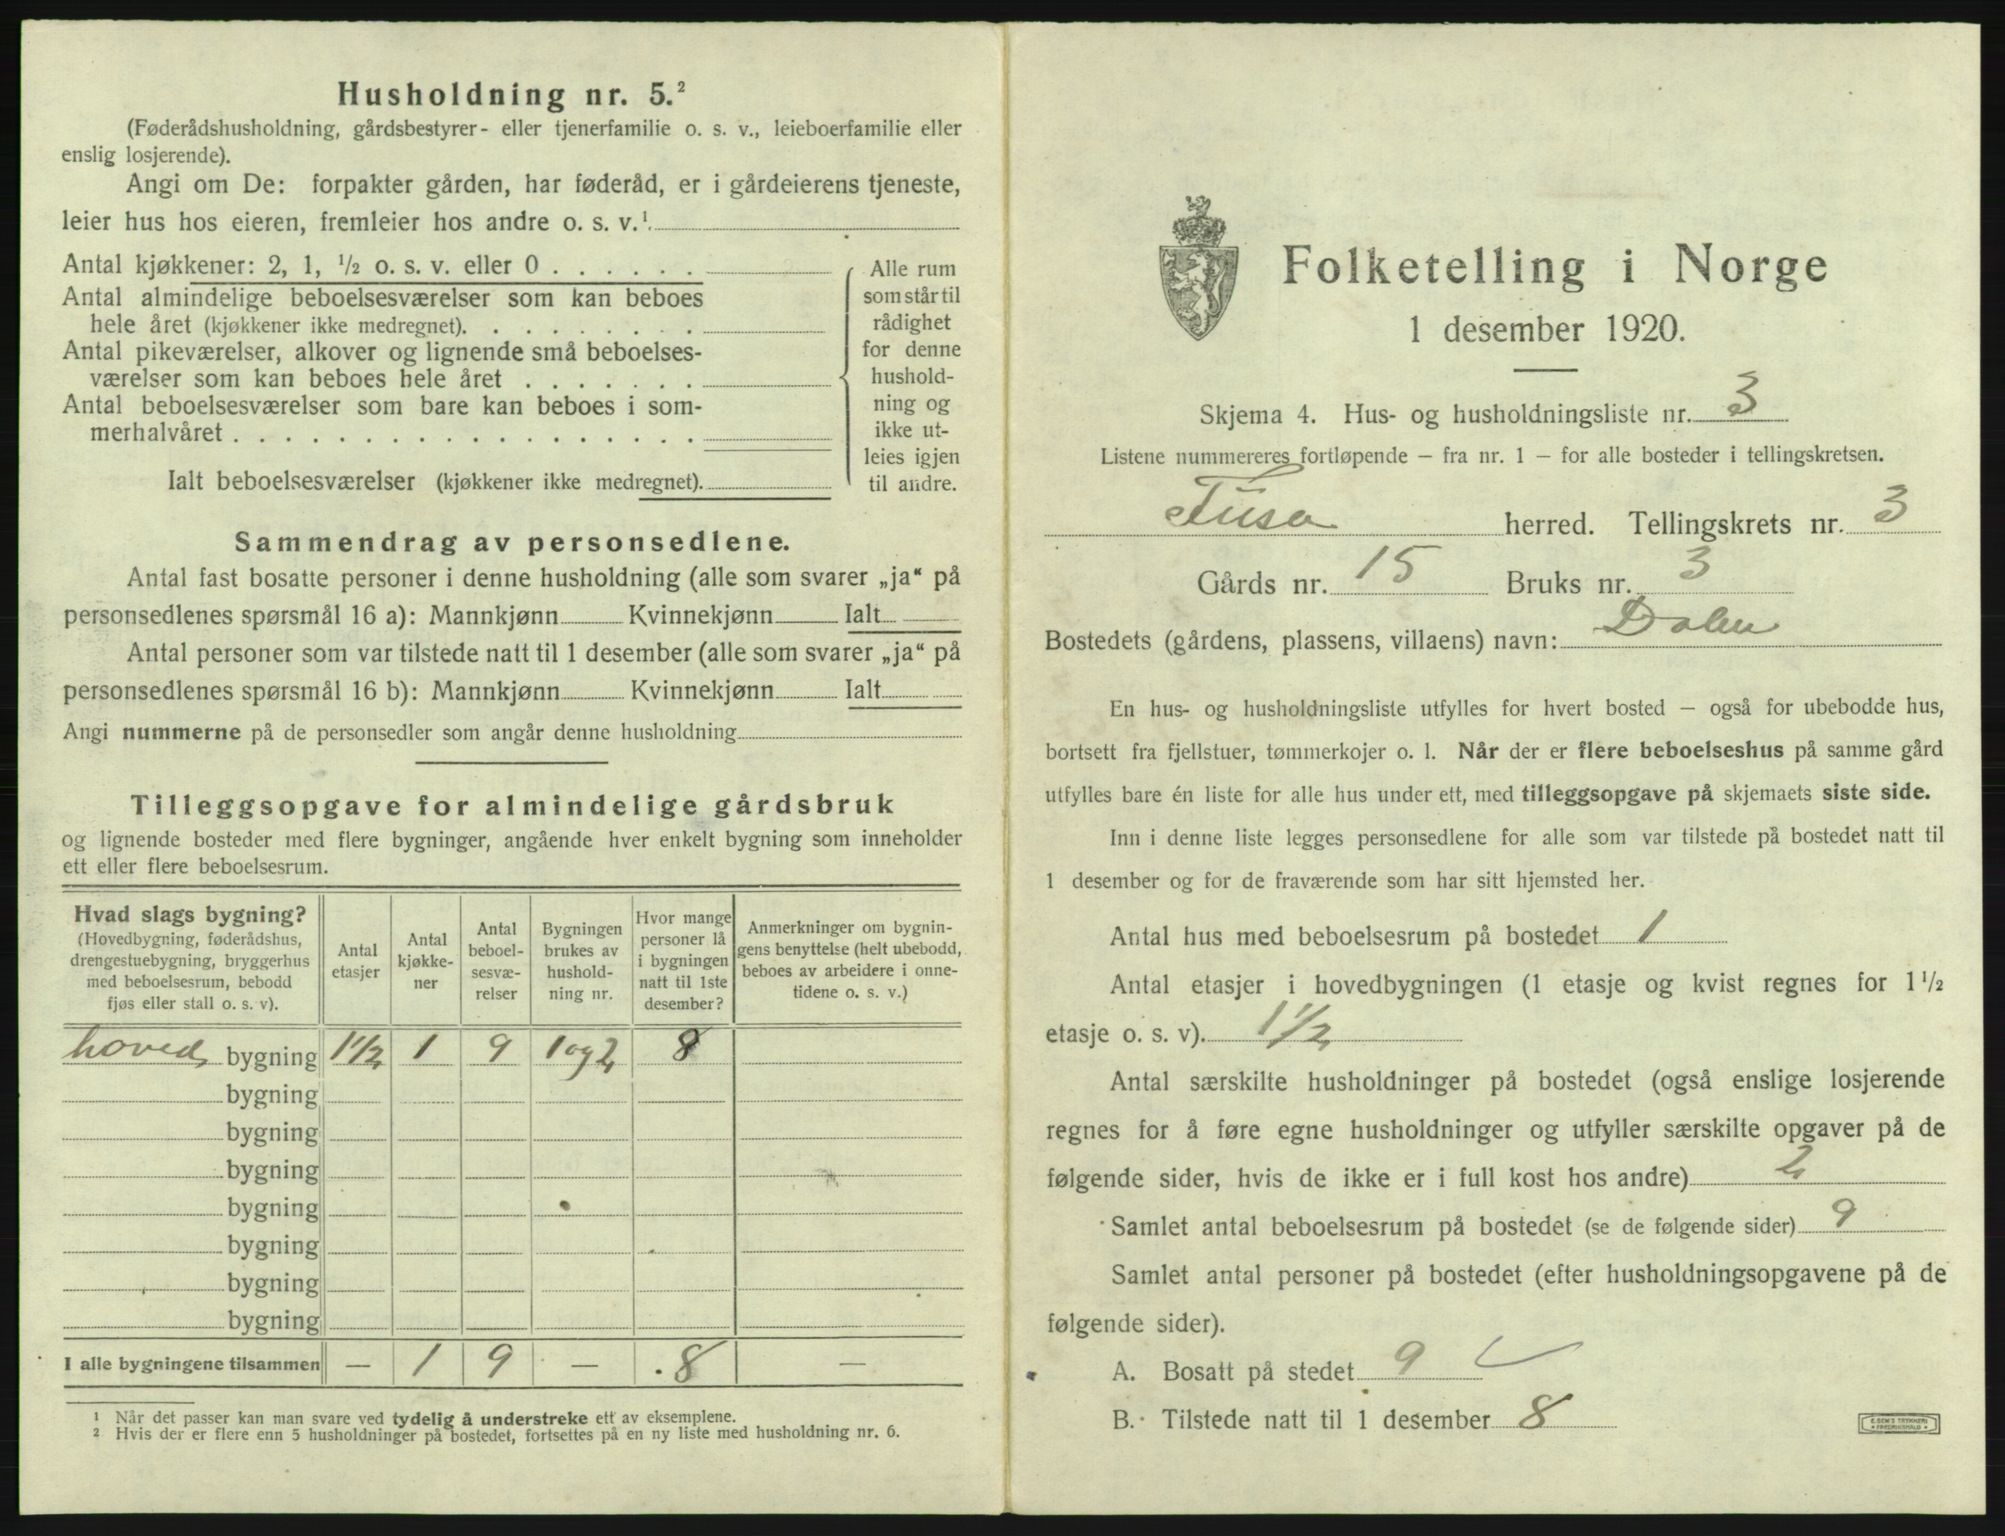 Husholdning nr. 5.²
(Føderådshusholdning, gårdsbestyrer- eller tjenerfamilie o. s. v., leieboerfamilie eller
enslig losjerende).
Angi om De: forpakter gården, har føderåd, er i gårdeierens tjeneste,
leier hus hos eieren, fremleier hos andre o. s. v.¹
Antal kjøkkener: 2, 1, ½ o. s. v. eller 0
Antal almindelige beboelsesværelser som kan beboes
hele året (kjøkkener ikke medregnet).
Antal pikeværelser, alkover og lignende små beboelses-
værelser som kan beboes hele året
Antal beboelsesværelser som bare kan beboes i som-
merhalvåret
Ialt beboelsesværelser (kjøkkener ikke medregnet).
Alle rum
som står til
rådighet
for denne
hushold-
ning og
ikke ut-
leies igjen
til andre.
Sammendrag av personsedlene.
Antal fast bosatte personer i denne husholdning (alle som svarer „ja“ på
personsedlenes spørsmål 16 a): Mannkjønn Kvinnekjønn Ialt
Antal personer som var tilstede natt til 1 desember (alle som svarer „ja“ på
personsedlenes spørsmål 16 b): Mannkjønn Kvinnekjønn Ialt
Angi nummerne på de personsedler som angår denne husholdning
Tilleggsopgave for almindelige gårdsbruk
og lignende bosteder med flere bygninger, angående hver enkelt bygning som inneholder
ett eller flere beboelsesrum.
Hvad slags bygning?
(Hovedbygning, føderådshus,
drengestuebygning, bryggerhus
med beboelsesrum, bebodd
fjøs eller stall o. s. v).
Antal
etasjer
Antal
kjøkke-
ner
Antal
beboel-
sesvæ-
relser
Bygningen
brukes av
hushold-
ning nr.
Hvor mange
personer lå
i bygningen
natt til 1ste
desember?
Anmerkninger om bygnin-
gens benyttelse (helt ubebodd,
beboes av arbeidere i onne-
tidene o. s. v.)
hoved bygning 1½ 1 9 1 og 2 8
bygning
bygning
bygning
bygning
bygning
bygning
bygning
I alle bygningene tilsammen — 1 9 — 8 —
¹ Når det passer kan man svare ved tydelig å understreke ett av eksemplene.
² Hvis der er flere enn 5 husholdninger på bostedet, fortsettes på en ny liste med husholdning nr. 6.
Folketelling i Norge
1 desember 1920.
Skjema 4. Hus- og husholdningsliste nr. 3
Listene nummereres fortløpende — fra nr. 1 — for alle bosteder i tellingskretsen.
Fusa herred. Tellingskrets nr. 3
Gårds nr. 15 Bruks nr. 3
Bostedets (gårdens, plassens, villaens) navn: Dalen
En hus- og husholdningsliste utfylles for hvert bosted — også for ubebodde hus,
bortsett fra fjellstuer, tømmerkojer o. l. Når der er flere beboelseshus på samme gård
utfylles bare én liste for alle hus under ett, med tilleggsopgave på skjemaets siste side.
Inn i denne liste legges personsedlene for alle som var tilstede på bostedet natt til
1 desember og for de fraværende som har sitt hjemsted her.
Antal hus med beboelsesrum på bostedet 1
Antal etasjer i hovedbygningen (1 etasje og kvist regnes for 1½
etasje o. s. v). 1½
Antal særskilte husholdninger på bostedet (også enslige losjerende
regnes for å føre egne husholdninger og utfyller særskilte opgaver på de
følgende sider, hvis de ikke er i full kost hos andre) 2
Samlet antal beboelsesrum på bostedet (se de følgende sider) 9
Samlet antal personer på bostedet (efter husholdningsopgavene på de
følgende sider).
A. Bosatt på stedet 9
B. Tilstede natt til 1 desember 8